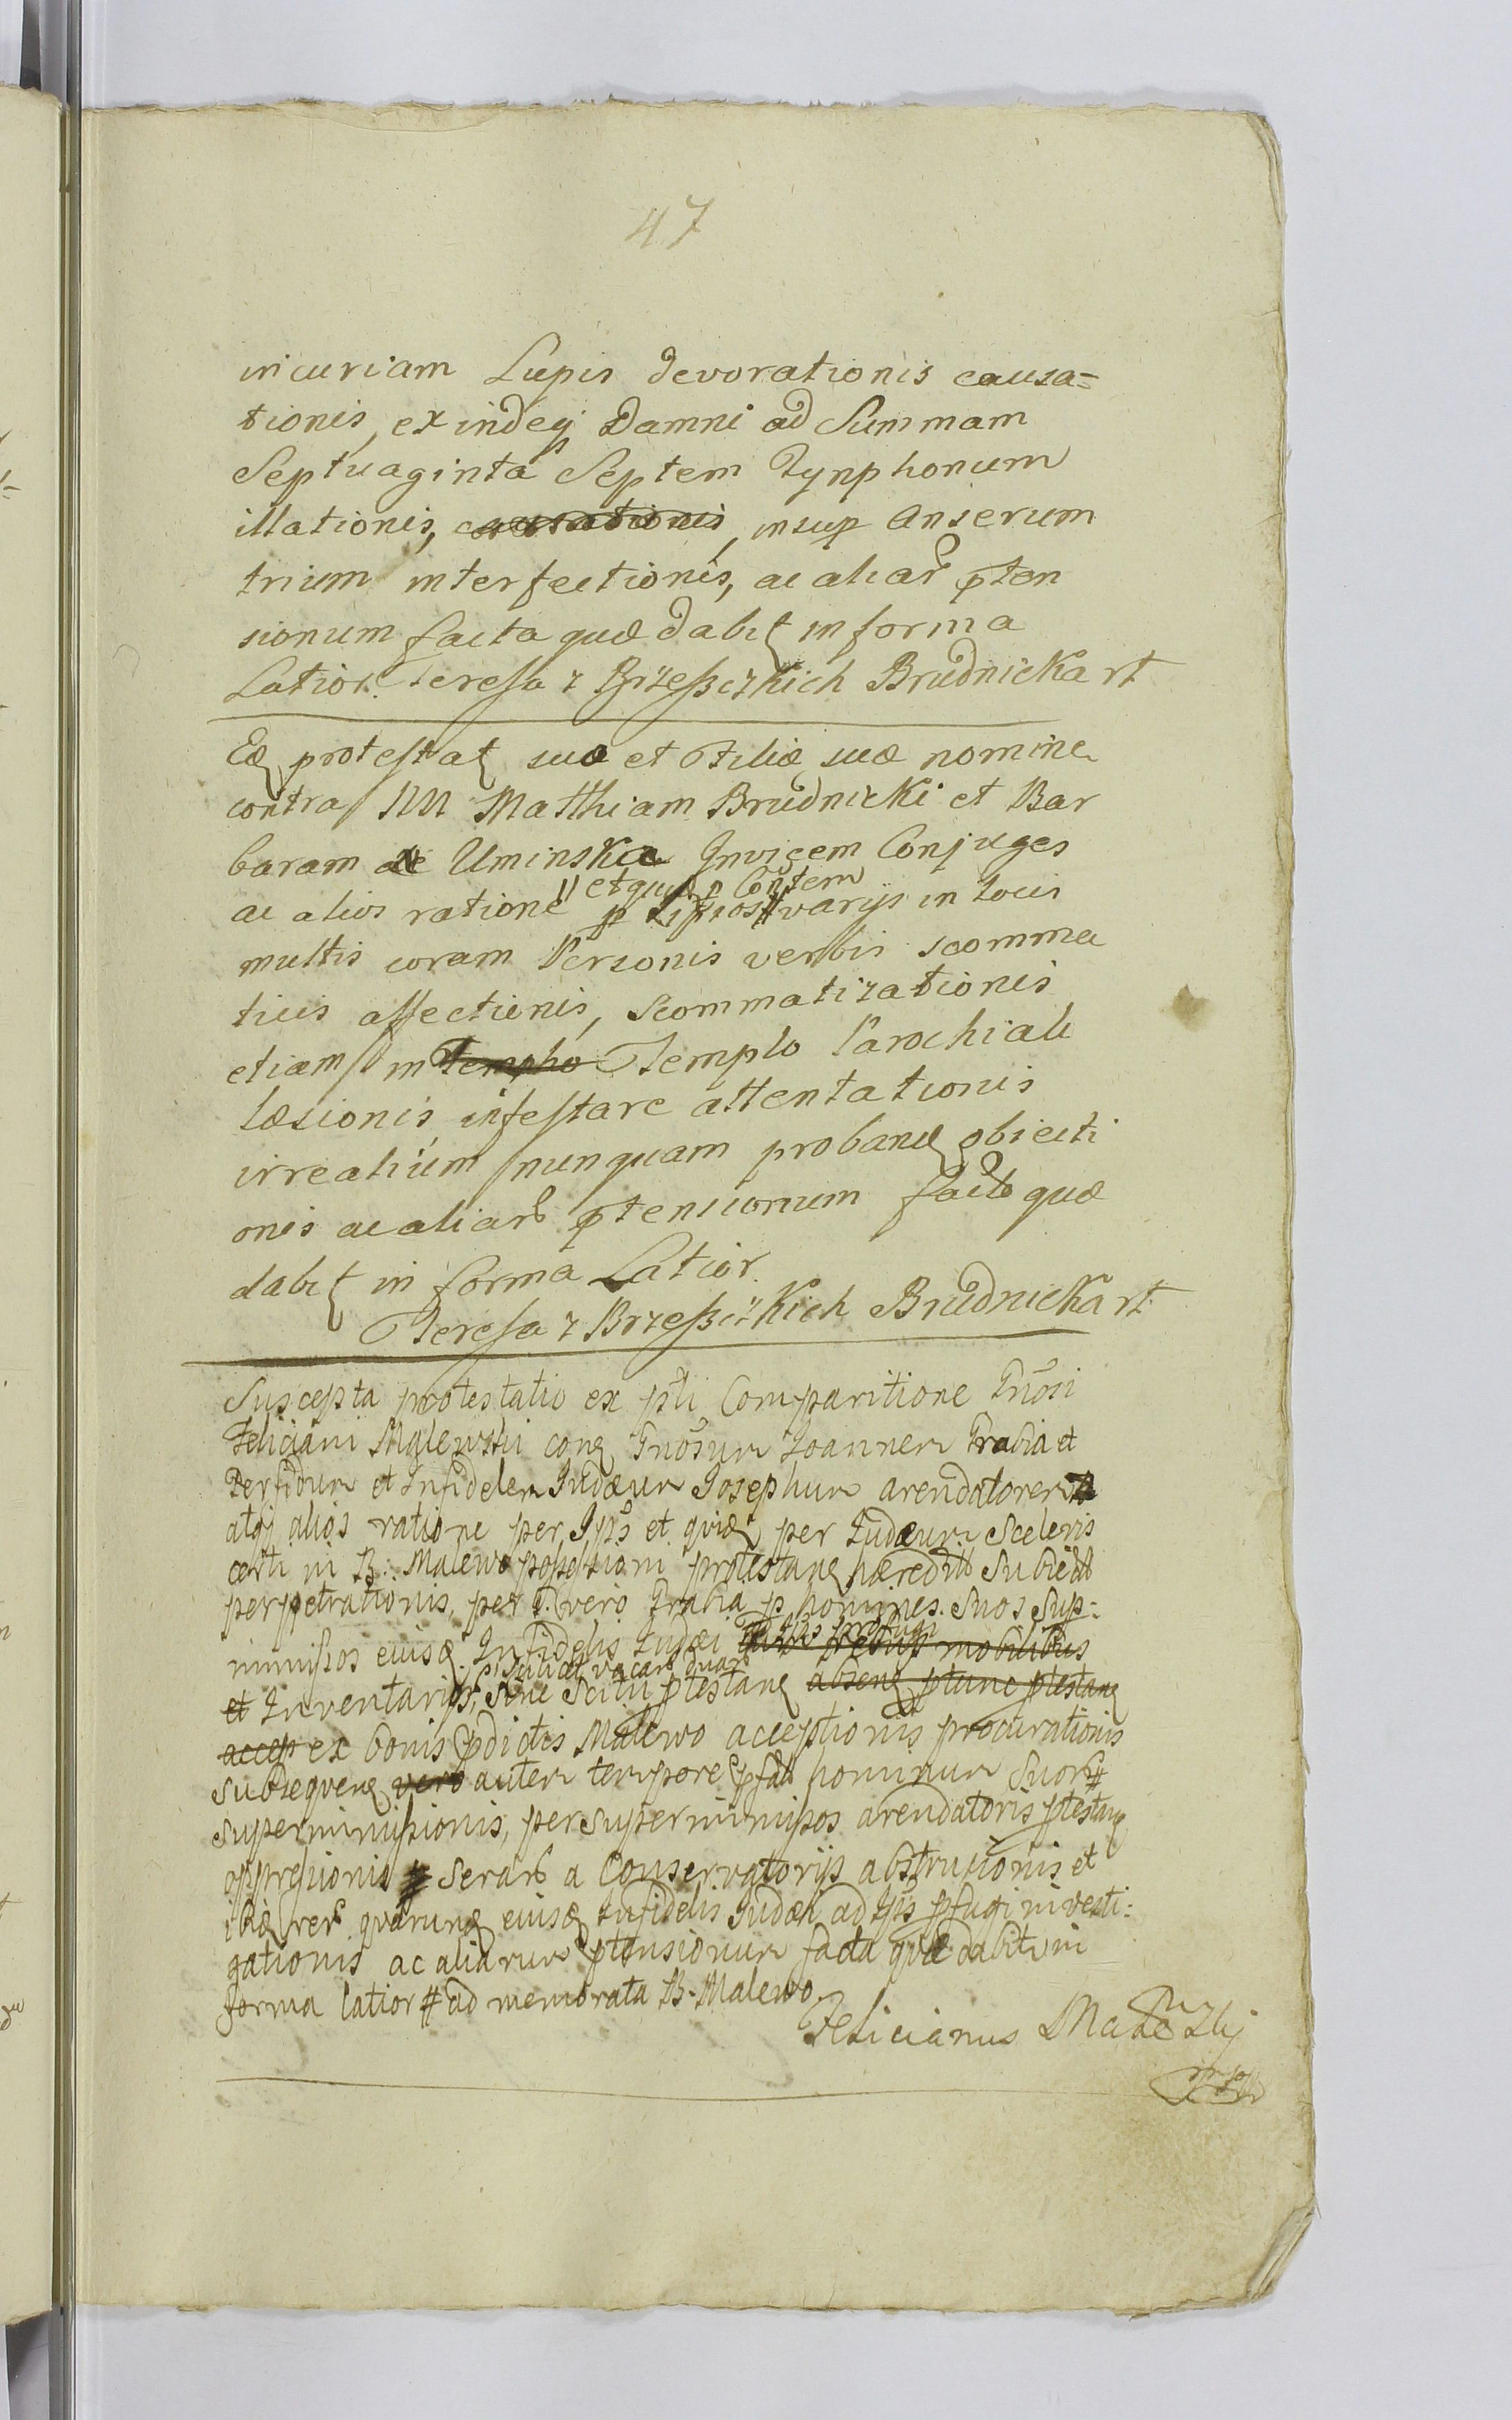 47
incuriam Lupis devorationis causa=
tionis, exindeq Damni ad Summam
Septuaginta Septem Tynphonum
illationis, causationis, insup Anserum
trium interfectionis, ac aliar pten
sionum facta quæ dabit in forma
Latior. Teresa z Brzeßczkich Brudnicka rt
Ead protestat suo et Filiæ suæ nomine
contra NN Matthiam Brudnicki et Bar
baram de Uminska Invicem Conjuges
ac alios ratione p Ipsos varijs in Locis
multis coram Personis verbis scomma
ticis affectionis, Scommatizationis
etiam in Templo Templo Parochiali
læsionis infestare attentationis
irrealium nunquam proband obiecti
onis ac aliar ptensionum facta quæ
dabit in forma Latior.
Teresa z Brzeßczkich Brudnicka rt
Suscepta protestatio ex pñti Comparitione Gnõsi
Feliciani Malewski con Gnõsum Joannem Grabia et
Perfidum et Infidelem Judæum Josephum arendatorem
atq alios ratione per Ips et quid per Judæum Sceleris
certi in B: Malewo possessioni protestan hæredit Subiect
perpetrationis, per G. vero Grabia p homines Suos Sup:
inmissos eiusd Infidelis Judæi mobilibus
et Inventarijs, sine Scitu ptestan absen ptunc ptestan
accep ex bonis pdictis Malewo acceptionis procurationis
subsequen vero autem tempore pfat hominum Suor #
superinmissionis, per superinmissos arendatoris ptestan
oppressionis serar a Conservatorijs abstrusionis et
ibid rer quarund eiusd Infidelis Judæi ad Ips pfugi investi:
gationis ac aliarum ptensionum facta quæ dabit in
forma latior # ad memorata B. Malewo.
Felicianus Malewski